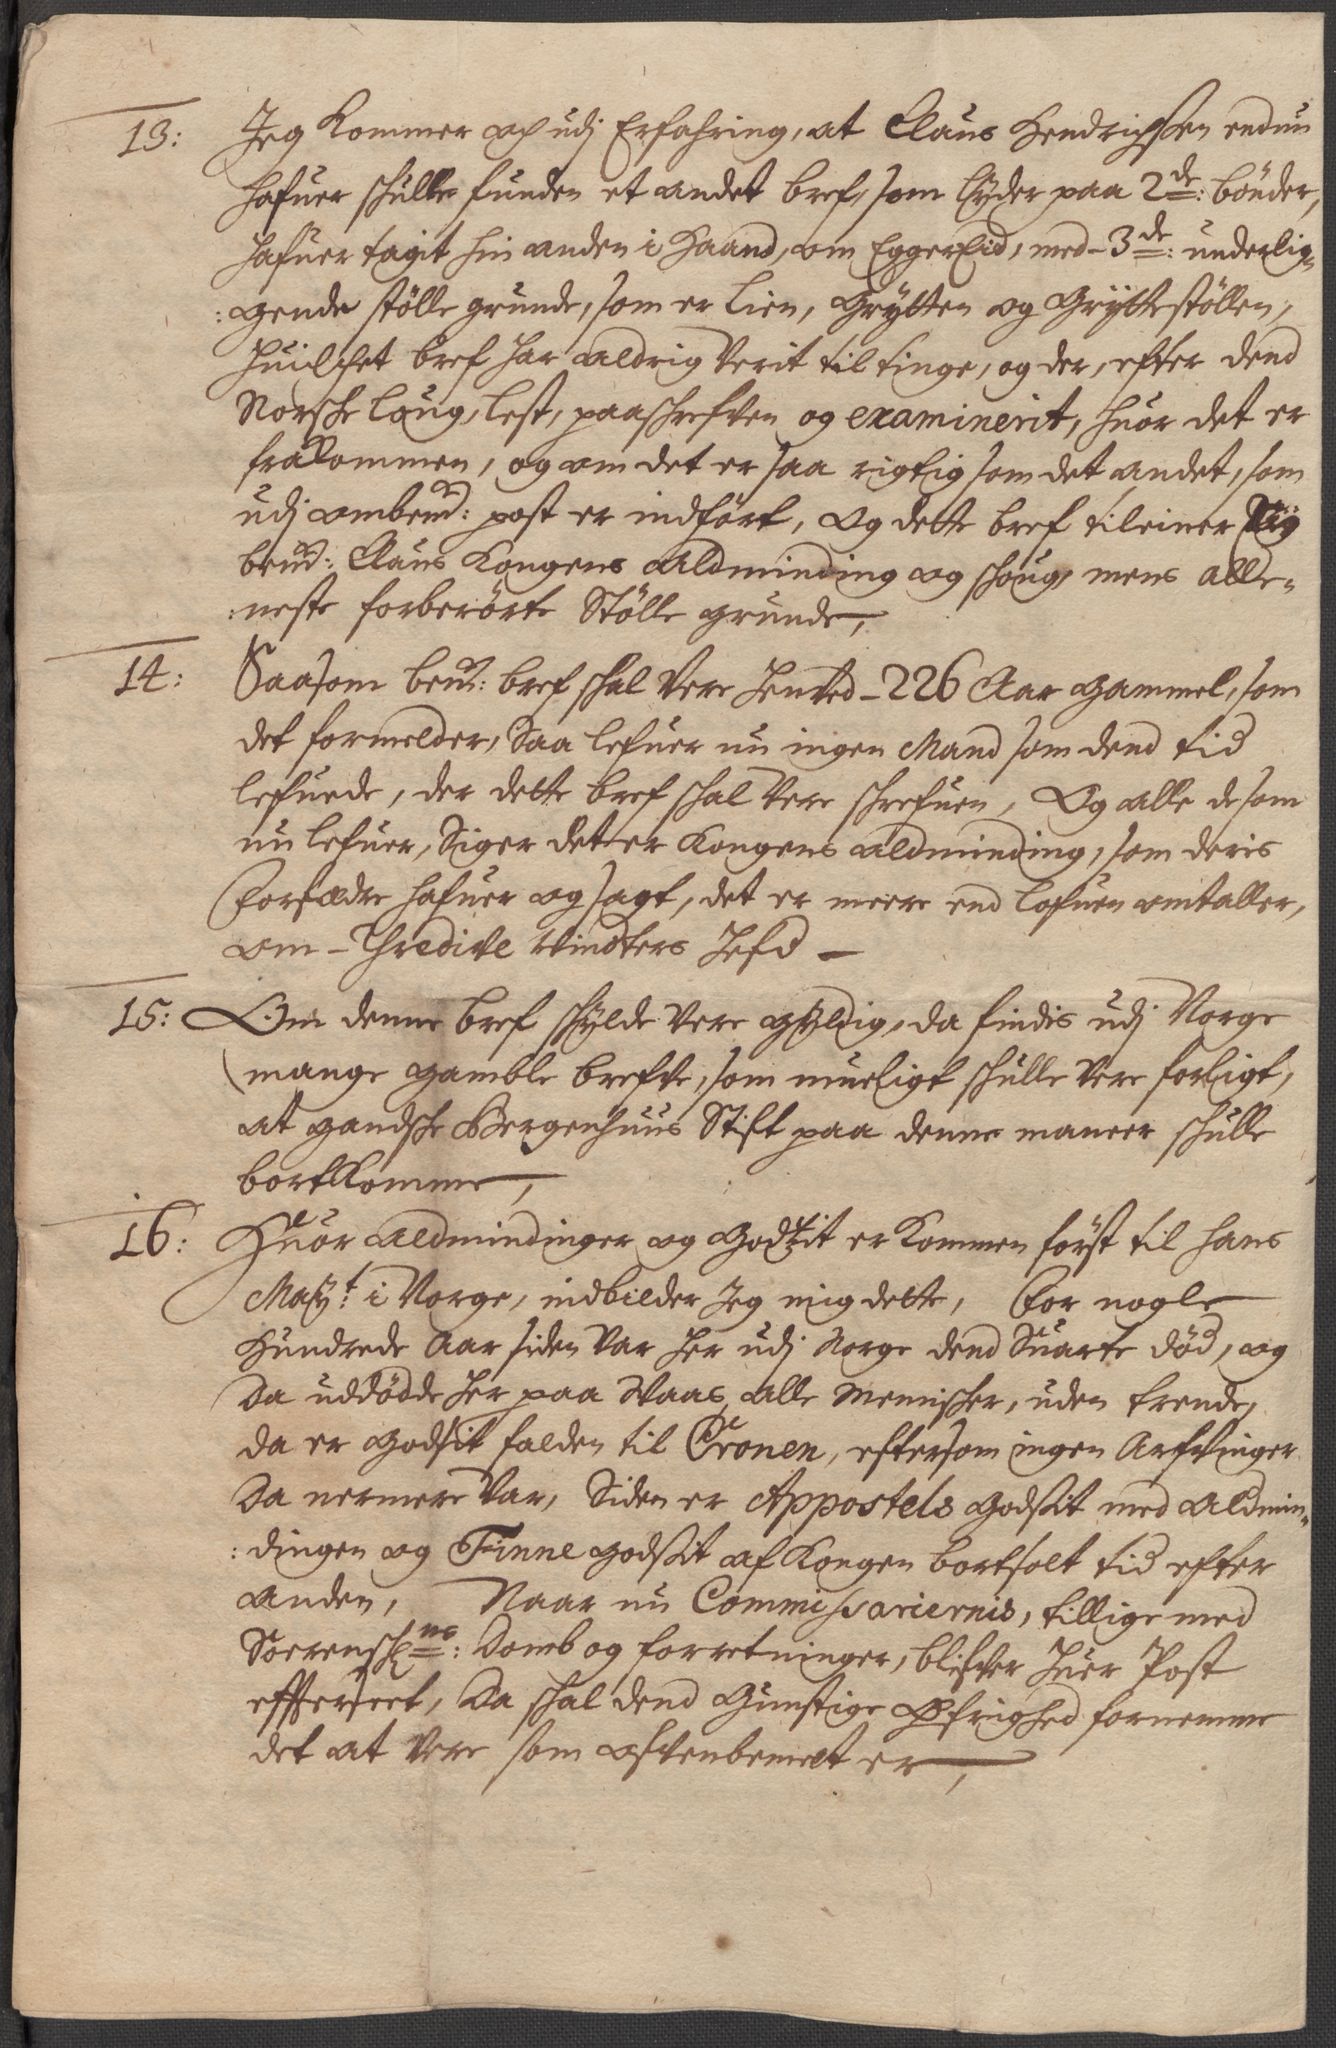 13: Jeg Kommer og udj Erfahring, at Claus Hendrichsen endnu
hafuer schulle funden et andet bref, som lyder paa 2de: bönder,
hafuer tagit hin anden i Haand, om EggerEid, med 3de: underlig-
:gende stölle grunde, som er Lien, Grytten og Gryttestöllen,
huilchet bref har aldrig Verit til tinge, og der, efter dend
Norsche loug, lest, paaschrefven og examinerit, huor det er
frakommen, og om det er saa rigtig som det andet, som
udj ombemd: post er indfört, Og dette bref tileiner Sig
bemd: Claus Kongens Aldminding og schoug, mens alle-
:neste forberörte Stölle grunde,
14: Saasom bemd: bref schal Vere henved 226 Aar gammel, som
det formelder, Saa lefuer nu ingen Mand som dend tid
lefuede, der dette bref schal Vere schrefuen, Og alle de som
nu lefuer, Siger det er Kongens aldminding, som deris
Forfædre hafuer og sagt, det er meere end lofuen omtaller,
om Thredive Vindters Hefd
15: Om denne bref schylde Vere gyldig, da findis udj Norge
mange gamble brefve, som mueligt schulle Vere forligt,
at gandsche Bergenhuus Stift paa denne maneer schulle
bortkomme,
16: Huor Aldmindinger og Godtzit er Kommen först til hans
Mayt: i Norge, indbilder Jeg mig dette, For nogle
Hundrede Aar siden Var her udj Norge dend Suarte död, og
Da uddödde her paa Waas alle Mennischer, uden trende,
da er godsit falden til Cronen, eftersom ingen Arfvinger
Da nermere Var, Siden er Appostels godsit med Aldmin-
:dingen og Finne godsit af Kongen bortsolt tid efter
anden, Naar nu Commissariernis, tillige med
Sorensch:ns: Domb og forretninger, blifver huer Post
efterseet, Da schal dend Gunstige Öfrighed fornemme
det at Vere som ofvenbemelt er,